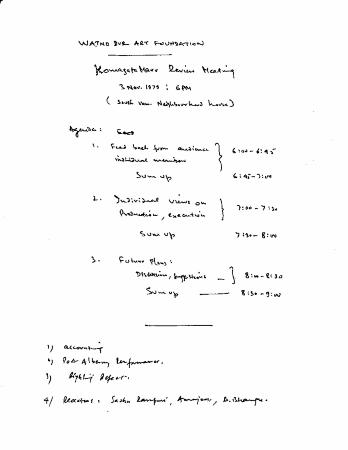 WATNO DUR ART FOUNDATION
Komagata Maru Review Meeting
3 Nov. 1979 : 6 PM
( South Van Neighbourhood house )
Agenda :
1. Feed back from audience 6:00 - 6:45
individual members
Sum up 6:45 - 7:00
2. Individual views on 7:00 - 7:30
Production, execution
Sum up 7:30 - 8:00
3. Future Plays :
Discussion, Suggestions - 8:00 - 8:30
Sum up 8:30 - 9:00
1) accounting
2) Performance.
3) Report.
4) Reactions : Sadhu